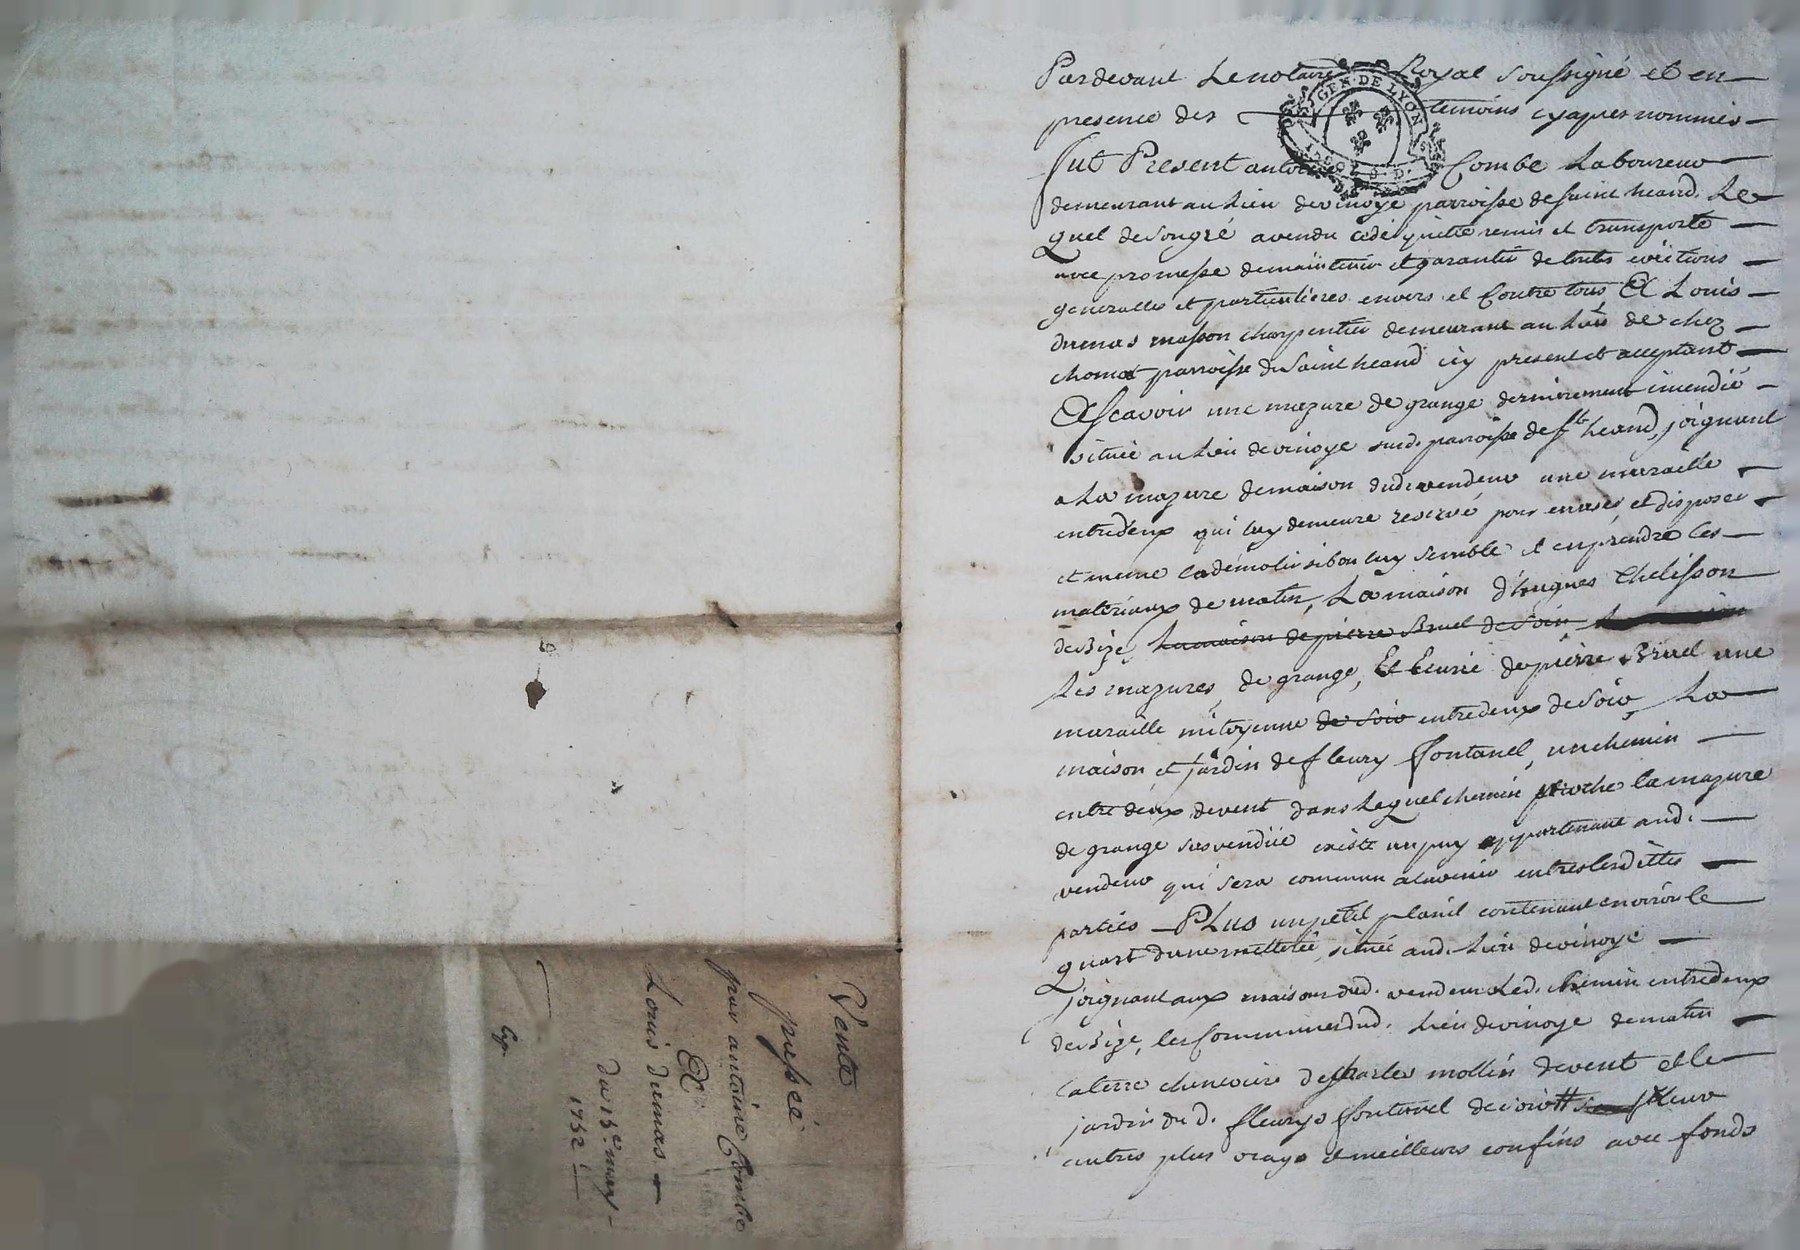 Pardevant Le notaire Royal soussigné et en
presence des temoins cyapres nommés
Fut Present antoine Combe Laboureur
demeurant au Lieu de vinoye parroisse de saint heand, Le
quel de son gré a vendu cedé quitté remis et transporté
avec promesse de maintenir et garantir de touts evictions
generalles et particulieres envers et Contre tous, A Louis
dumas masson charpentier demeurant au Lieu de chez
chomat parroisse de Saint heand icy present et acceptant
A Scavoir une mazure de grange dernierement incendié
située au Lieu de vinoye sud. parroisse de st heand, joignant
a La mazure de maison dud. vendeur une muraille
entredeux qui luy demeure reservé pour en user, et disposer
et meme la démolir si bon luy semble et en prendre les
materiaux de matin, La maison d'hugues thelisson
de bize, La maison de pierre Bruel de soir
Les mazures, de grange, Et Ecurie de pierre Bruel une
muraille mitoyenne de soir entredeux de soir, La
maison et jardin de fleury fontanel, un chemin
entre deux de vent dans Lequel chemin proche la mazure
de grange sus vendüe existe un puy appartenant aud.
vendeur qui sera commun a l'avenir entre lesdittes
parties — PLus un petit plasil contenant environ le
quart d'une metterée, située aud. Lieu de vinoye
joignant aux maisons dud. vendeur Led. chemin entredeux
de bize, les Communes dud. Lieu de vinoye de matin
la terre cheneviere de charles mollin de vent et le
jardin dud. fleury fontanel de soir # sauf Leur
autres plus vrays et meilleurs confins avec fonds
Vente
passée
par antoine Combe
A
Louis dumas
du 15e. may
1752
Exp.
GEN. DE LYON